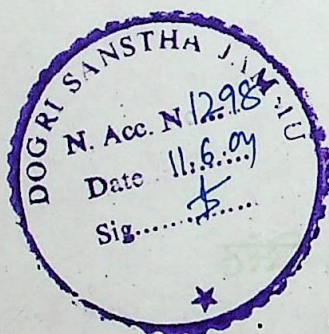 DOGRI SANSTHA JAMMU
N. Acc. N 1298
Date 11.6.04
Sig.............